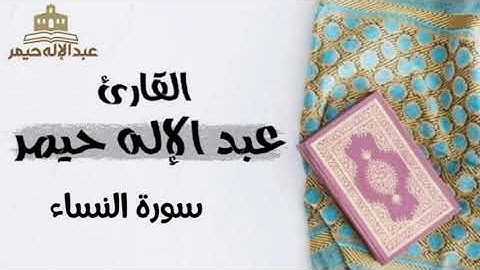 عبد الإله حيمر
القارئ
عبد الإله حيمر
سورة النساء